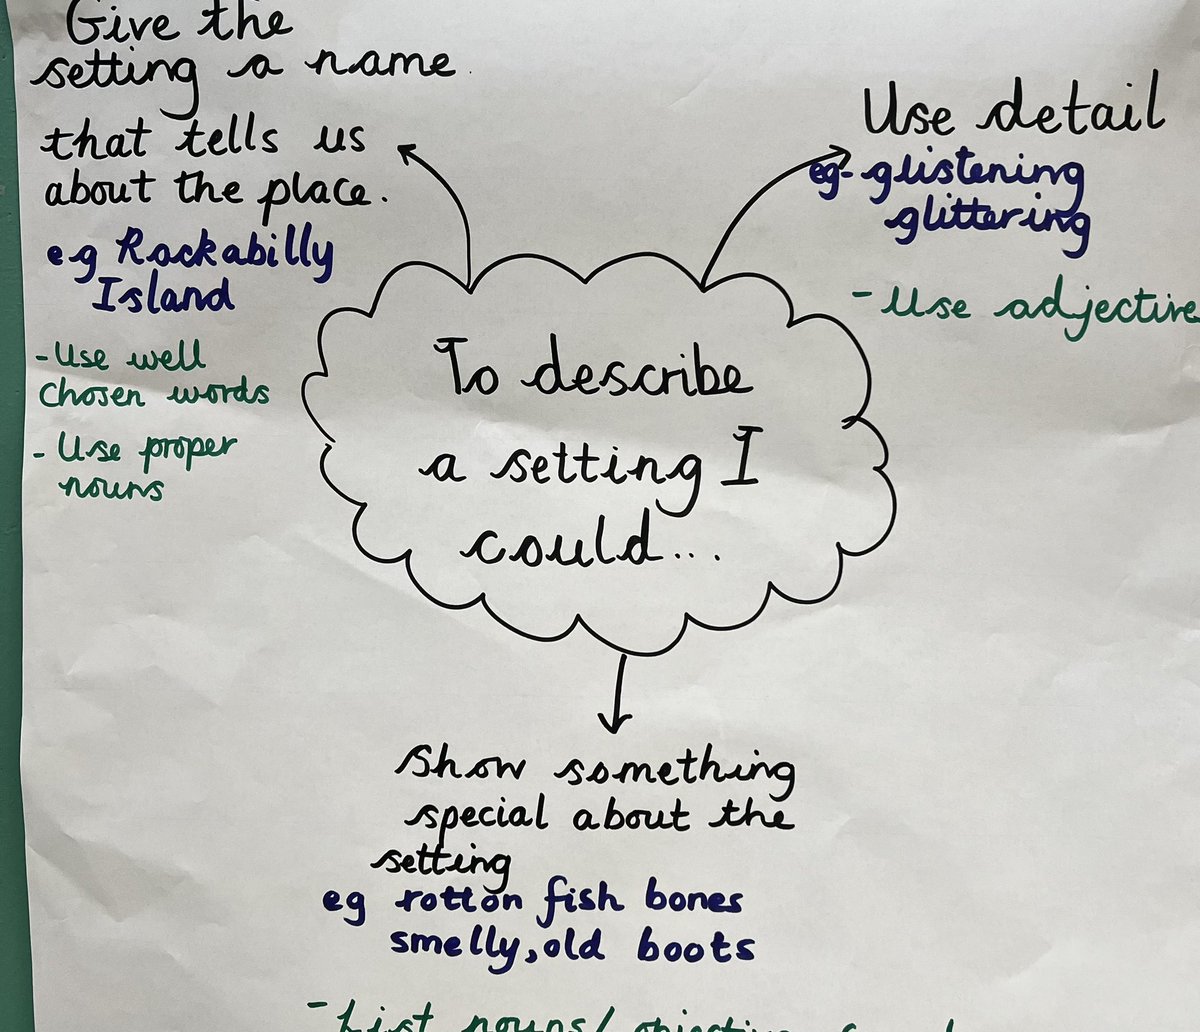 Give the
setting a name
that tells us
about the place.
eg Rockabilly
Island
- Use well
chosen words
- Use proper
nouns
Use detail
eg- glistening
glittering
- Use adjective
To describe
a setting I
could...
Show something
special about the
setting
eg rotton fish bones
smelly, old boots
- List nouns/